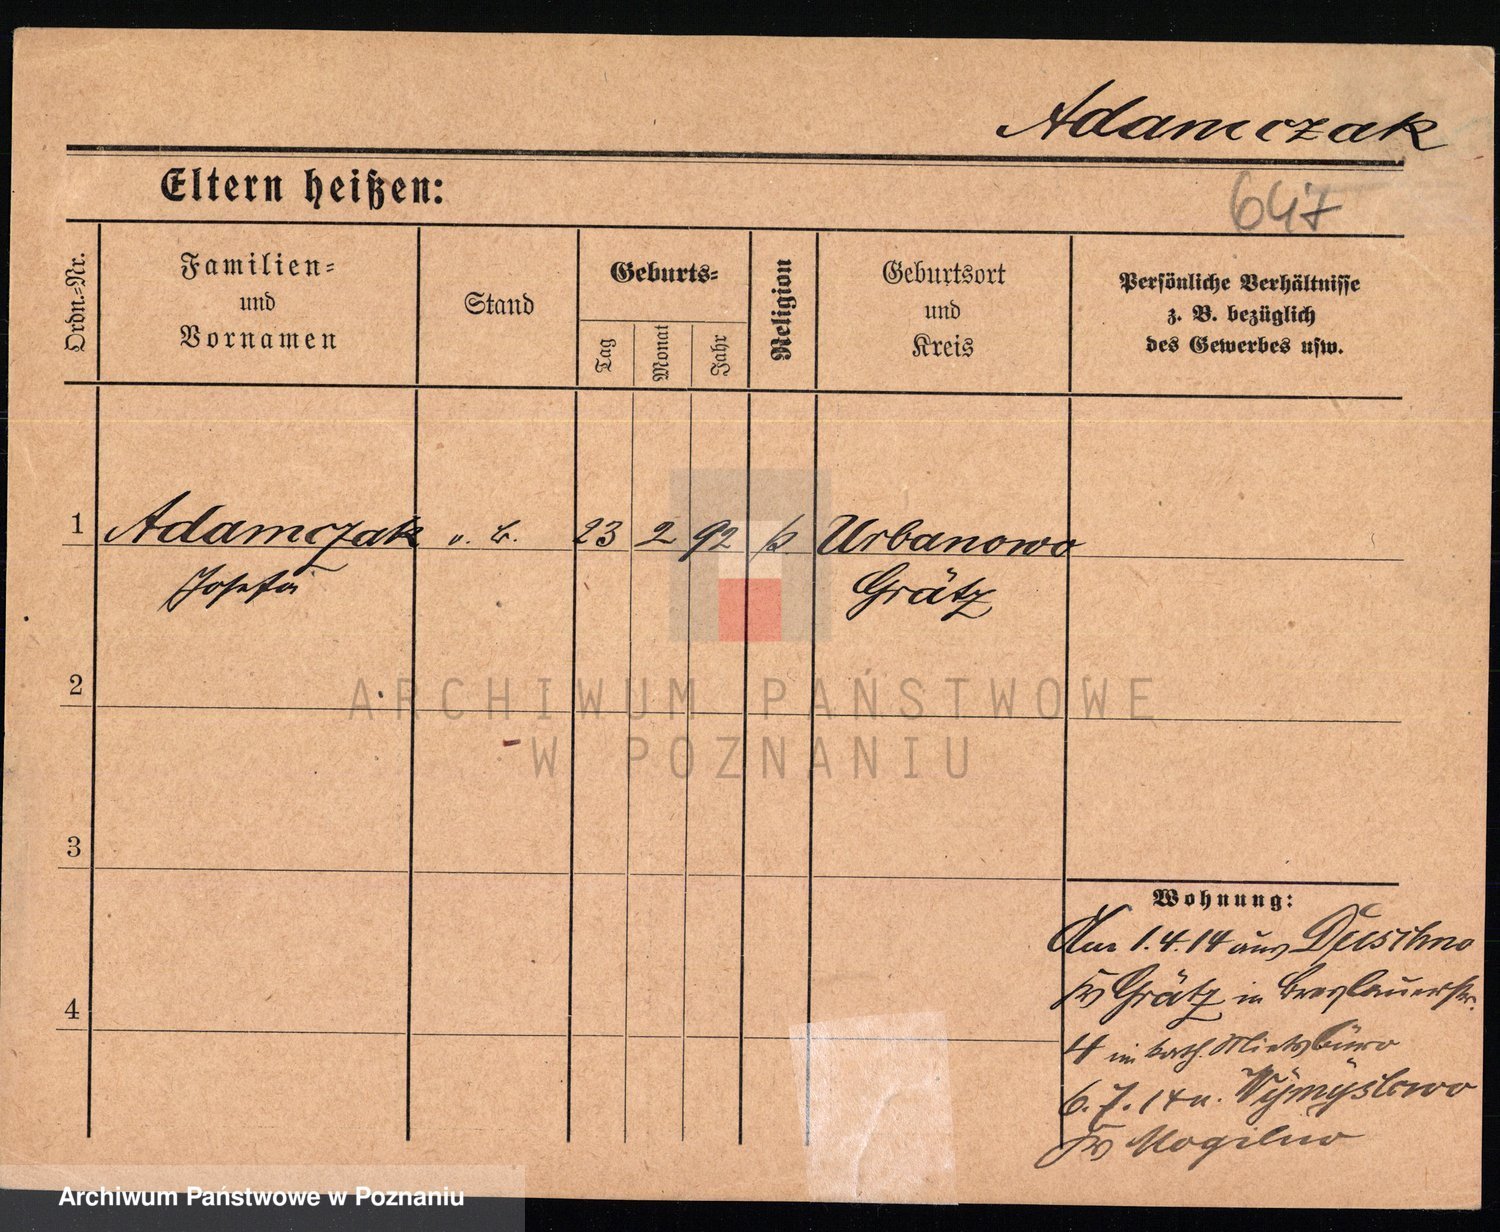 Adamczak
Eltern heißen:
647
Ordn.=Nr.
Familien=
und
Vornamen
Stand
Geburts=
Tag
Monat
Jahr
Religion
Geburtsort
und
Kreis
Persönliche Verhältnisse
z. B. bezüglich
des Gewerbes usw.
1 Adamczak o. B. 23 2 92 k. Urbanowo
Josefa Grätz
2
3
4
ARCHIWUM PAŃSTWOWE
W POZNANIU
Wohnung:
Am 1.4.14 aus Duschno
Kr Grätz in Breslauerstr.
4 im kath. Mietsbüro
6.7.14 n. Wymyslowo
Kr Mogilno
Archiwum Państwowe w Poznaniu